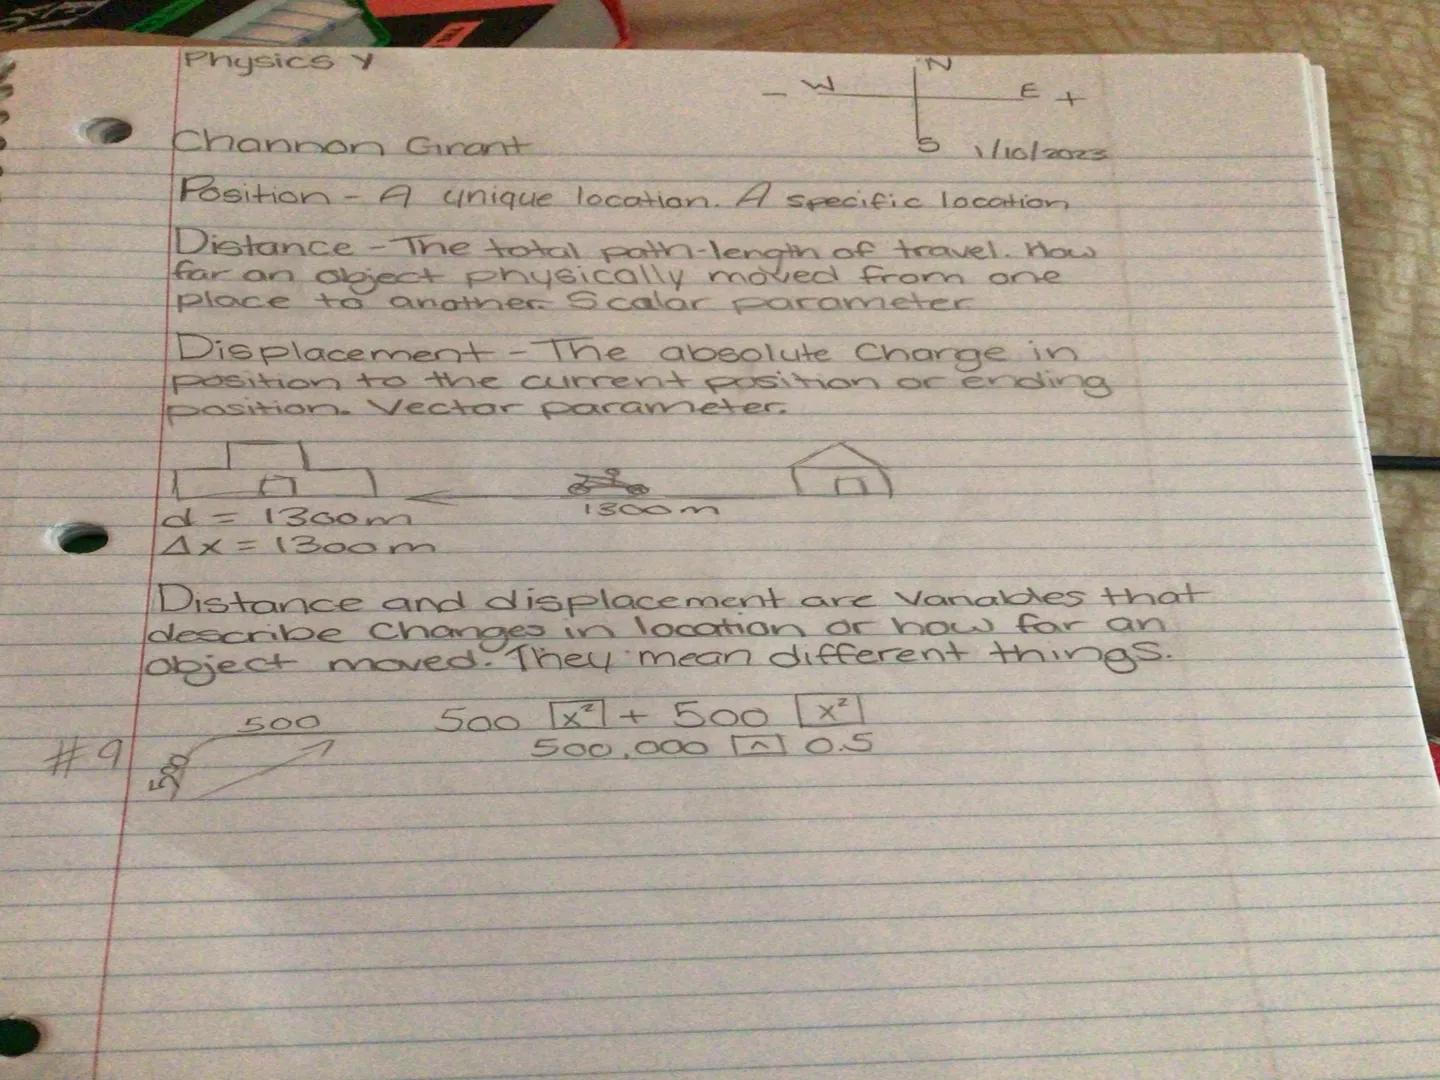 Physics Y
N
- W E +
S
Channon Grant
1/10/2023
Position - A unique location. A specific location
Distance - The total path-length of travel. How
far an object physically moved from one
place to another. Scalar parameter
Displacement - The absolute Change in
position to the current position or ending
position. Vector parameter.
1300m
d = 1300m
Δx = 1300m
Distance and displacement are Variables that
describe Changes in location or how far an
object moved. They mean different things.
#9
500
500
500 x² + 500 x²
500,000 ^ 0.5